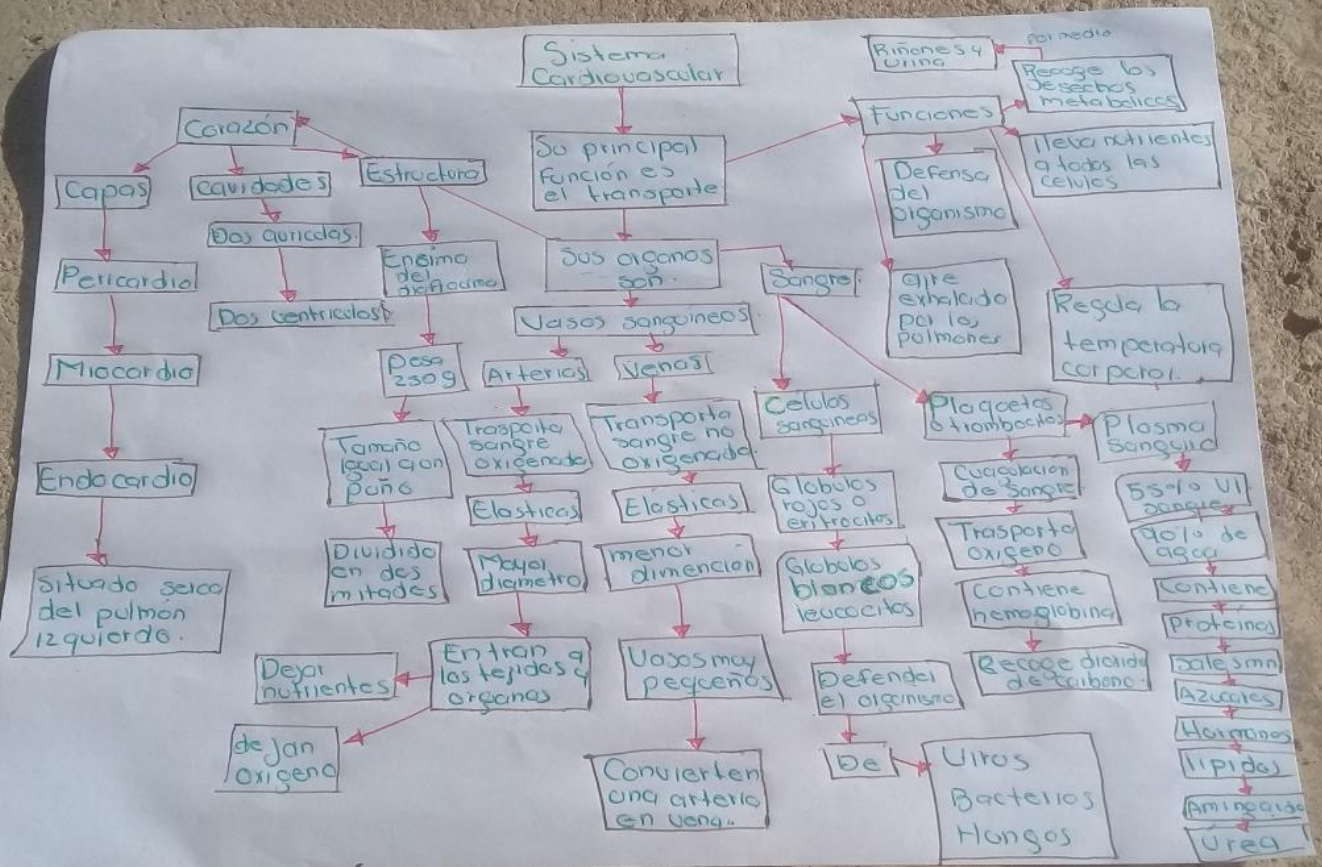 Sistema
Cardiovascular
Su principal
Función es
el transporte
Sus organos
son.
Corazón
Capas
Pericardio
Miocardio
Endocardio
Situado serca
del pulmón
izquierdo.
Cavidades
Dos auriculas.
Dos ventriculos
Estructura
Ensima
del
diafragma
Pesa
230 g
Tamaño
igual a un
puño
Dividido
en dos
mitades
Vasos sanguineos.
Arterias
Trasporta
sangre
oxigenada
Elasticas
Mayor
diametro
Entran a
los tejidos y
organos
Dejar
nutrientes
dejan
oxigeno
Venas
Transporta
sangre no
oxigenada.
Elásticas
menor
dimención
Vasos muy
pequeños
Convierten
una arteria
en vena.
Sangre.
Celulas
sanguineas
Globulos
rojos o
eritrocitos
Globulos
blancos
leucocitos
Defender
el organismo
De
Virus
Bacterias
Hongos
Plaquetas
o trombocitos
Cuagulacion
de sangre
Trasporta
oxigeno
Contiene
hemoglobina
Recoge dioxido
de carbono.
Plasma
55%
sangre
90% de
agua
Contiene
Proteinas
Sales mn
Azucares
Hormonas
lipidos
Urea
Funciones
Recoge los
desechos
metabolicos
por medio
Riñones y
urina
lleva nutrientes
a todas las
celulas
Defensa
del
organismo
aire
exhalado
por los
pulmones
Regula la
temperatura
corporal.